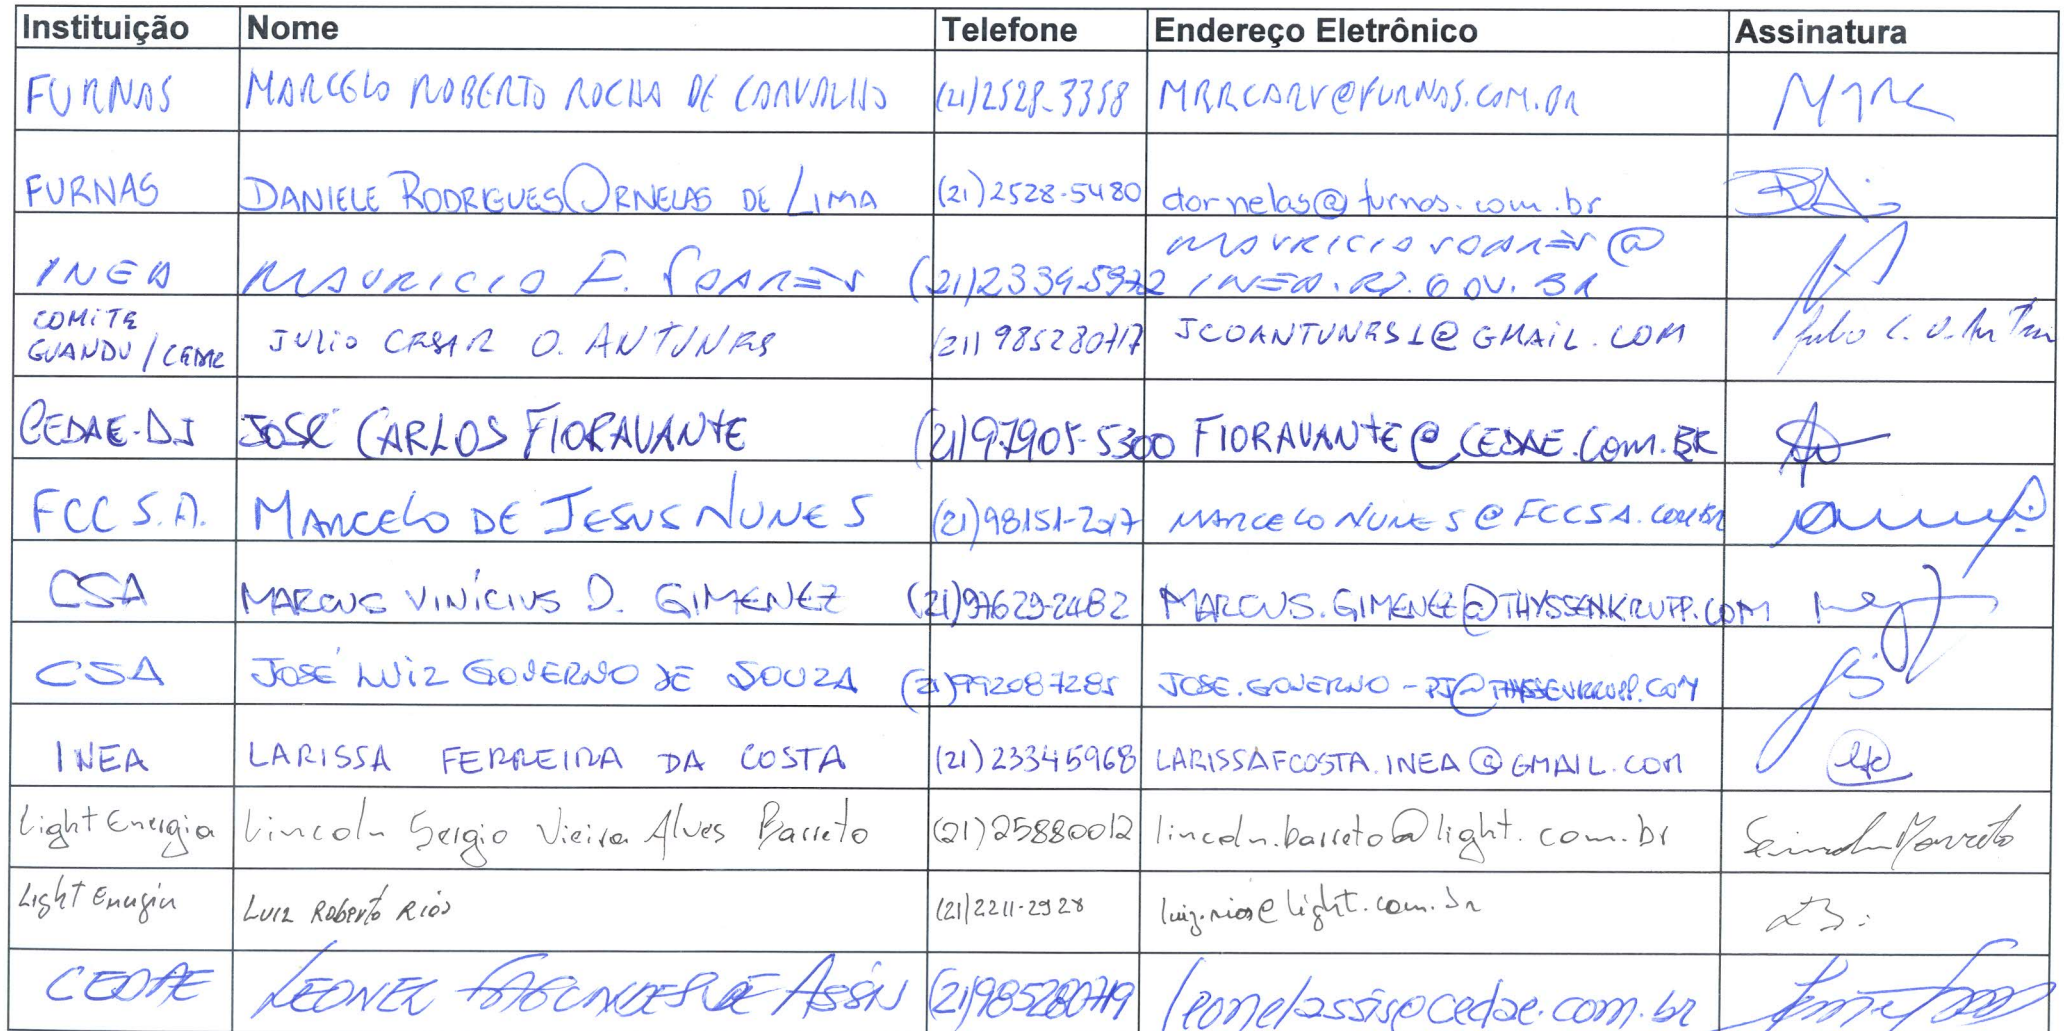 Instituição Nome Telefone Endereço Eletrônico Assinatura
FURNAS MARCELO ROBERTO ROCHA DE CARVALHO (21)2528-3358 MRRCARV@FURNAS.COM.BR
FURNAS DANIELE RODRIGUES ORNELAS DE LIMA (21)2528-5480 dornelas@furnas.com.br
INEA MAURICIO F. SOARES (21)2334-5972 MAURICIOSOARES@
INEA.RJ.GOV.BR
COMITE
GUANDU / CEDAE JULIO CESAR O. ANTUNES (21) 985280717 JCOANTUNES1@GMAIL.COM
CEDAE-DJ JOSÉ CARLOS FIORAVANTE (21)97905-5300 FIORAVANTE@CEDAE.COM.BR
FCC S.A. MARCELO DE JESUS NUNES (21)98151-2017 MARCELONUNES@FCCSA.COM.BR
CSA MARCUS VINÍCIUS D. GIMENEZ (21)97629-2482 MARCUS.GIMENEZ@THYSSENKRUPP.COM
CSA JOSÉ LUIZ GOVERNO DE SOUZA (21)992087285 JOSE.GOVERNO-PJ@THYSSENKRUPP.COM
INEA LARISSA FERREIRA DA COSTA (21)23345968 LARISSAFCOSTA.INEA@GMAIL.COM lfc
Light Energia Lincoln Sergio Vieira Alves Barreto (21)25880012 lincoln.barreto@light.com.br
Light Energia Luiz Roberto Rios (21)2211-2928 luiz.rios@light.com.br
CEDAE LEONEL FAGUNDES DE ASSIS (21)985280719 leonelassis@cedae.com.br